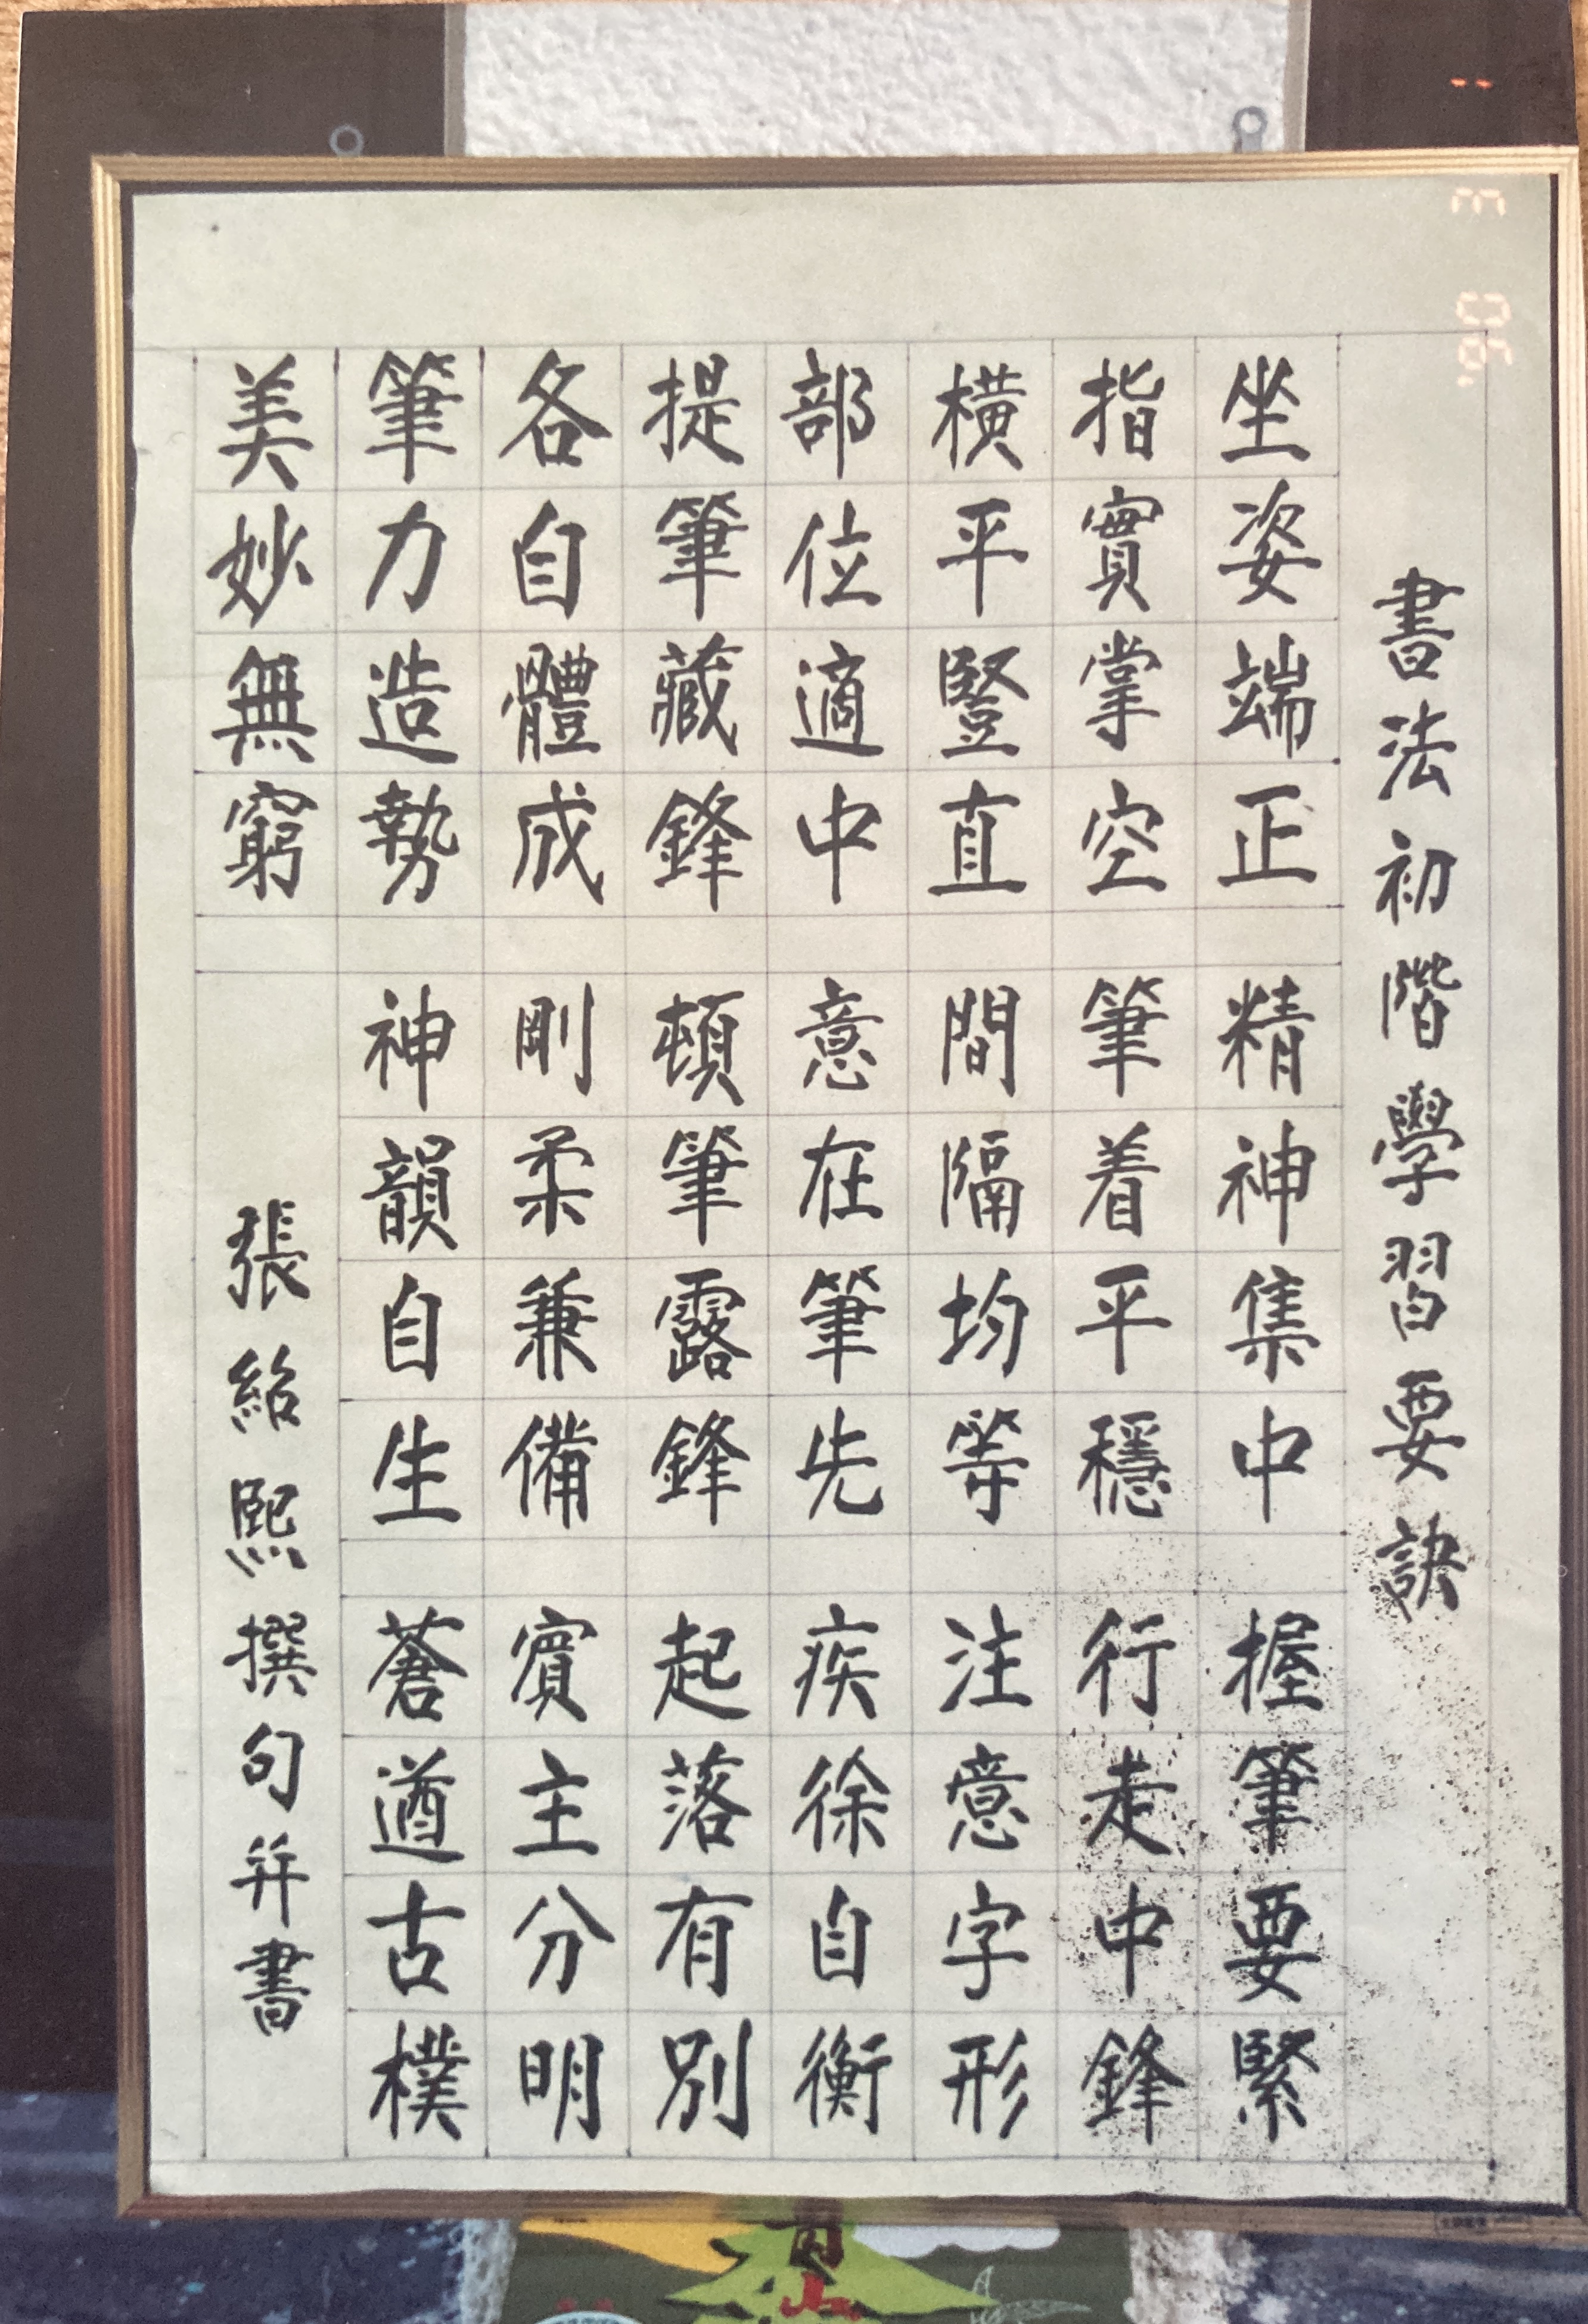 書法初階學習要訣
坐姿端正 精神集中 握筆要緊
指實掌空 筆着平穩 行走中鋒
橫平豎直 間隔均等 注意字形
部位適中 意在筆先 疾徐自衡
提筆藏鋒 頓筆露鋒 起落有別
各自體成 剛柔兼備 賓主分明
筆力造勢 神韻自生 蒼遒古樸
美妙無窮 張紹熙撰句并書